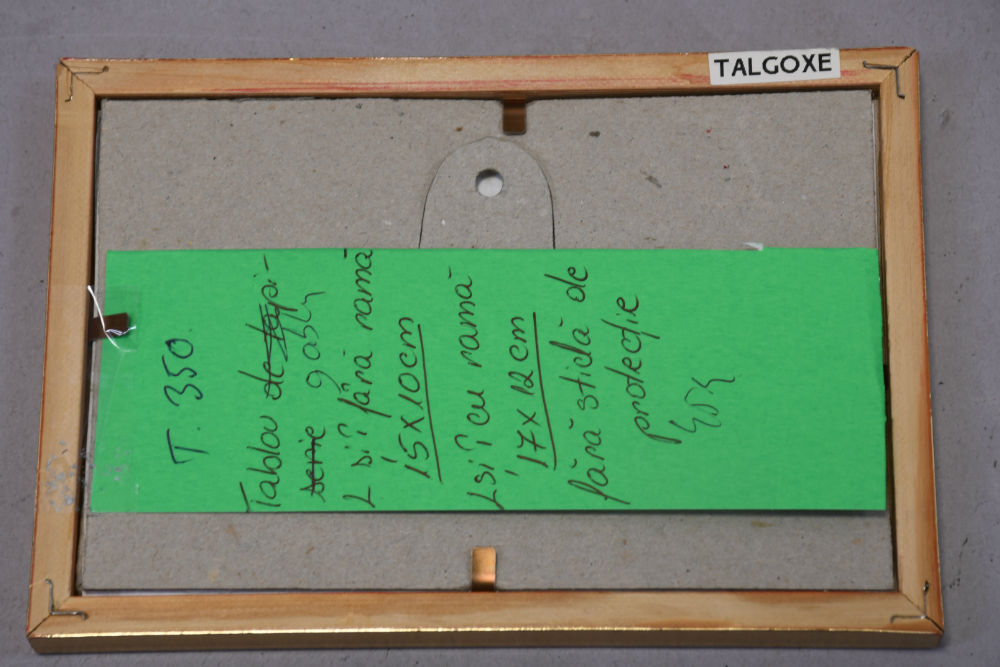 TALGOXE
T. 350.
Tablou de tapi-
serie
L și î fără ramă
15X10cm
L și î cu ramă
17X12cm
fără sticlă de
protecție